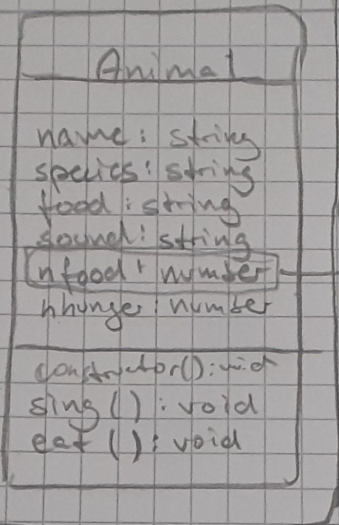 Animal
name: string
species: string
food: string
sound: string
nfood: number
nhunger: number
constructor(): void
sing(): void
eat(): void